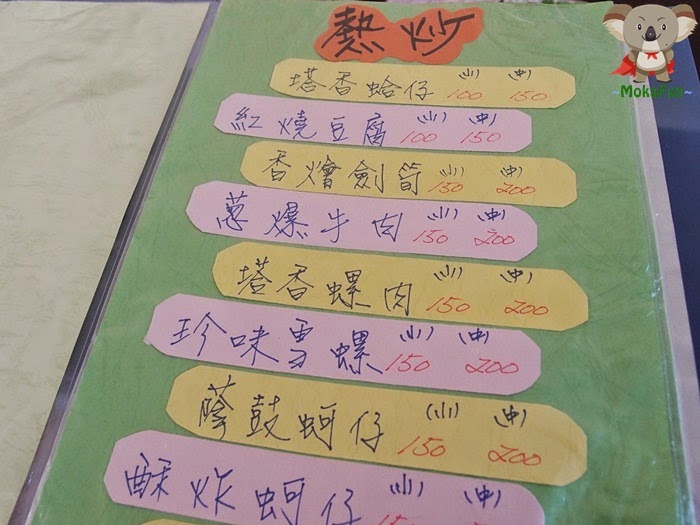 熱炒
MokaFox
塔香蛤仔 (小) 100 (中) 150
紅燒豆腐 (小) 100 (中) 150
香燴劍筍 (小) 150 (中) 200
蔥爆牛肉 (小) 150 (中) 200
塔香螺肉 (小) 150 (中) 200
珍味雪螺 (小) 150 (中) 200
蔭鼓蚵仔 (小) 150 (中) 200
酥炸蚵仔 (小) (中)